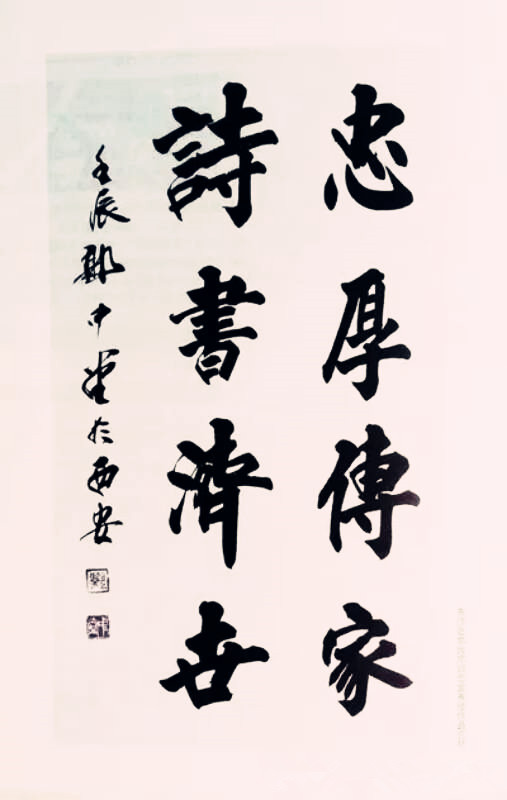 忠厚傳家
詩書濟世
壬辰鄭中堂於西安